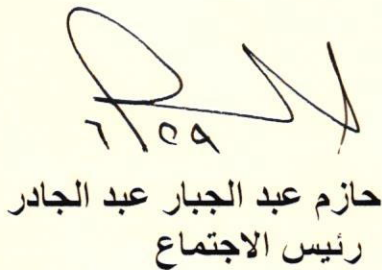 ٦/٢٩
حازم عبد الجبار عبد الجادر
رئيس الاجتماع